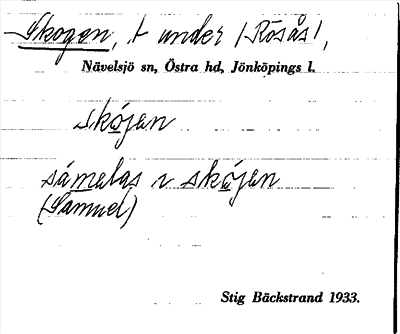 Skogen, t under /Rösås/,
Nävelsjö sn, Östra hd, Jönköpings l.
skojen
sámelas i skojen
(Samuel)
Stig Bäckstrand 1933.